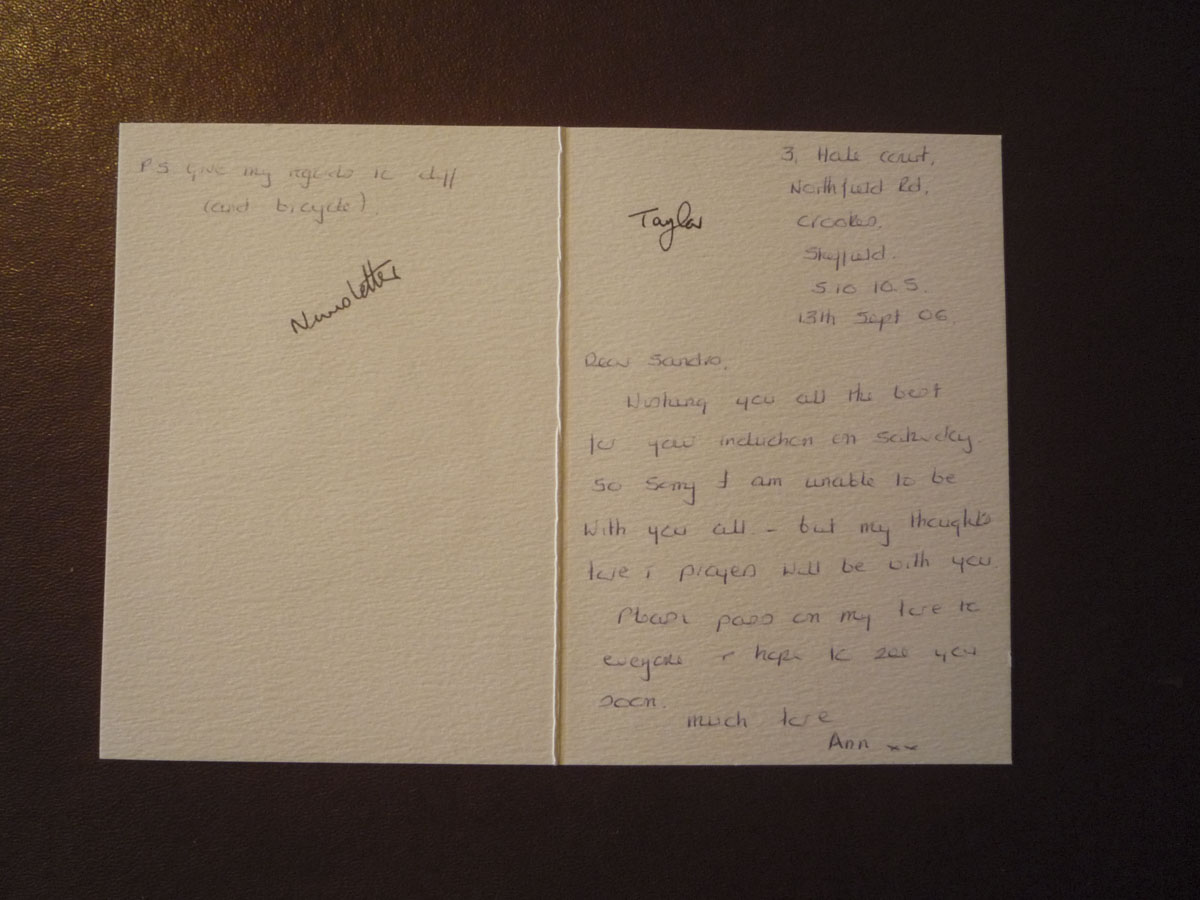 P.S Give my regards to Cliff
(and bicycle).
Newsletter
Taylor
3, Hale Court,
Northfield Rd,
Crookes.
Sheffield.
S.10 1Q.S.
13th Sept 06.
Dear Sandra,
Wishing you all the best
for your induction on Saturday.
So sorry I am unable to be
with you all - but my thoughts
love + prayers will be with you
Please pass on my love to
everyone + hope to see you
soon.
much love
Ann xx